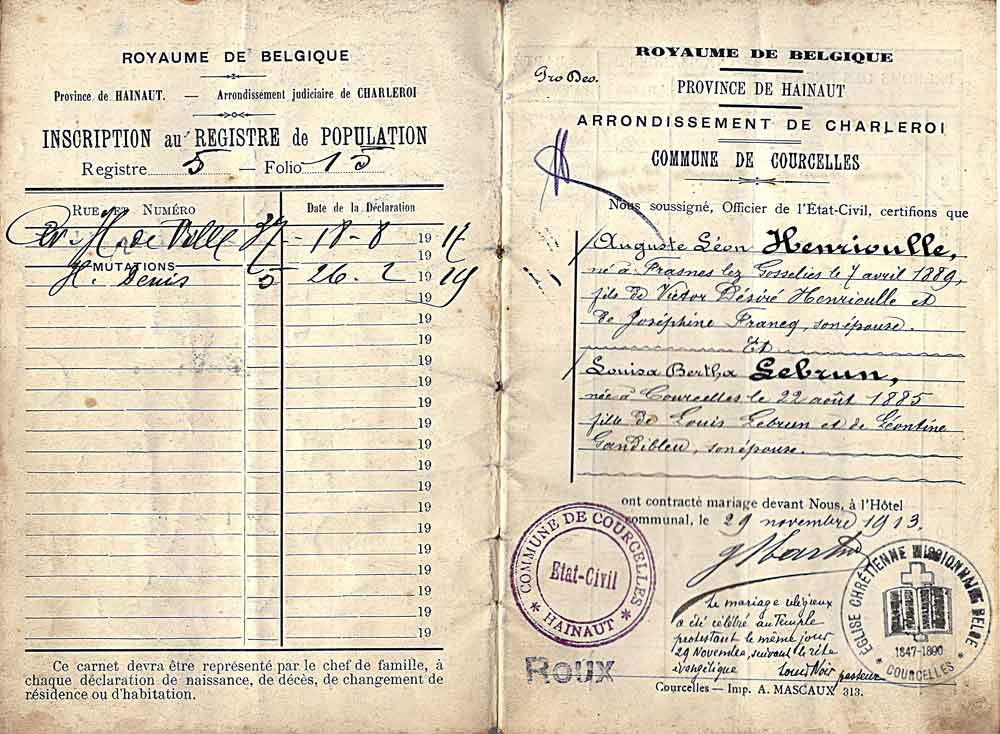 ROYAUME DE BELGIQUE
Province de HAINAUT. — Arrondissement judiciaire de CHARLEROI
INSCRIPTION au REGISTRE de POPULATION
Registre 5 — Folio 15
RUE ET NUMÉRO
Date de la Déclaration
H. de Ville 37 18-8 1917
19
MUTATIONS
H. Denis 5 26-2 1919
19
19
19
19
19
19
19
19
19
19
19
19
19
19
19
19
19
Ce carnet devra être représenté par le chef de famille, à
chaque déclaration de naissance, de décès, de changement de
résidence ou d'habitation.
ROYAUME DE BELGIQUE
Pro Deo.
PROVINCE DE HAINAUT
ARRONDISSEMENT DE CHARLEROI
COMMUNE DE COURCELLES
Nous soussigné, Officier de l'État-Civil, certifions que
Auguste Léon Henrioulle,
né à Frasnes lez Gosselies le 7 avril 1889,
fils de Victor Désiré Henrioulle et
de Joséphine Francq, son épouse.
Et
Louisa Bertha Lebrun,
née à Courcelles le 22 août 1885
fille de Louis Lebrun et de Léontine
Gandibleu, son épouse.
ont contracté mariage devant Nous, à l'Hôtel
communal, le 29 novembre 1913.
COMMUNE DE COURCELLES
Etat-Civil
* HAINAUT *
ROUX
Le mariage religieux
a été célébré au Temple
protestant le même jour
29 Novembre, suivant le rite
évangélique Louis Noir pasteur
EGLISE CHRÉTIENNE MISSIONNAIRE BELGE
1847-1890
* COURCELLES *
Courcelles — Imp. A. MASCAUX 313.